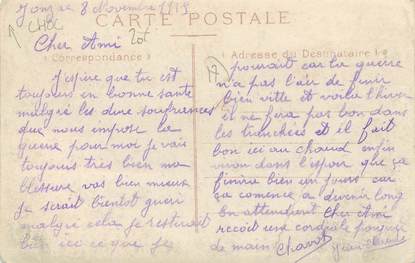 Jonzac 8 Novembre 1915
CARTE POSTALE
Cher Ami
(Correspondance)
J'espère que tu est
toujours en bonne santé
malgré les dure souffrances
que nous impose la
guerre pour moi je vais
toujours très bien ma
blessure vas bien mieux
je serait bientot gueri
malgré cela je resterait
bien ici ce que je
(Adresse du Destinataire)
pourrait car la guerre
n'a pas l'air de finir
bien vitte et voila l'hiver
il ne fera pas bon dans
les tranchées et il fait
bon ici au chaud enfin
vivon dans l'espoir que ça
finira bien un jours car
ça comence a devenir long
En attendant Cher Ami
recoit une cordiale poignée
de main Chavot